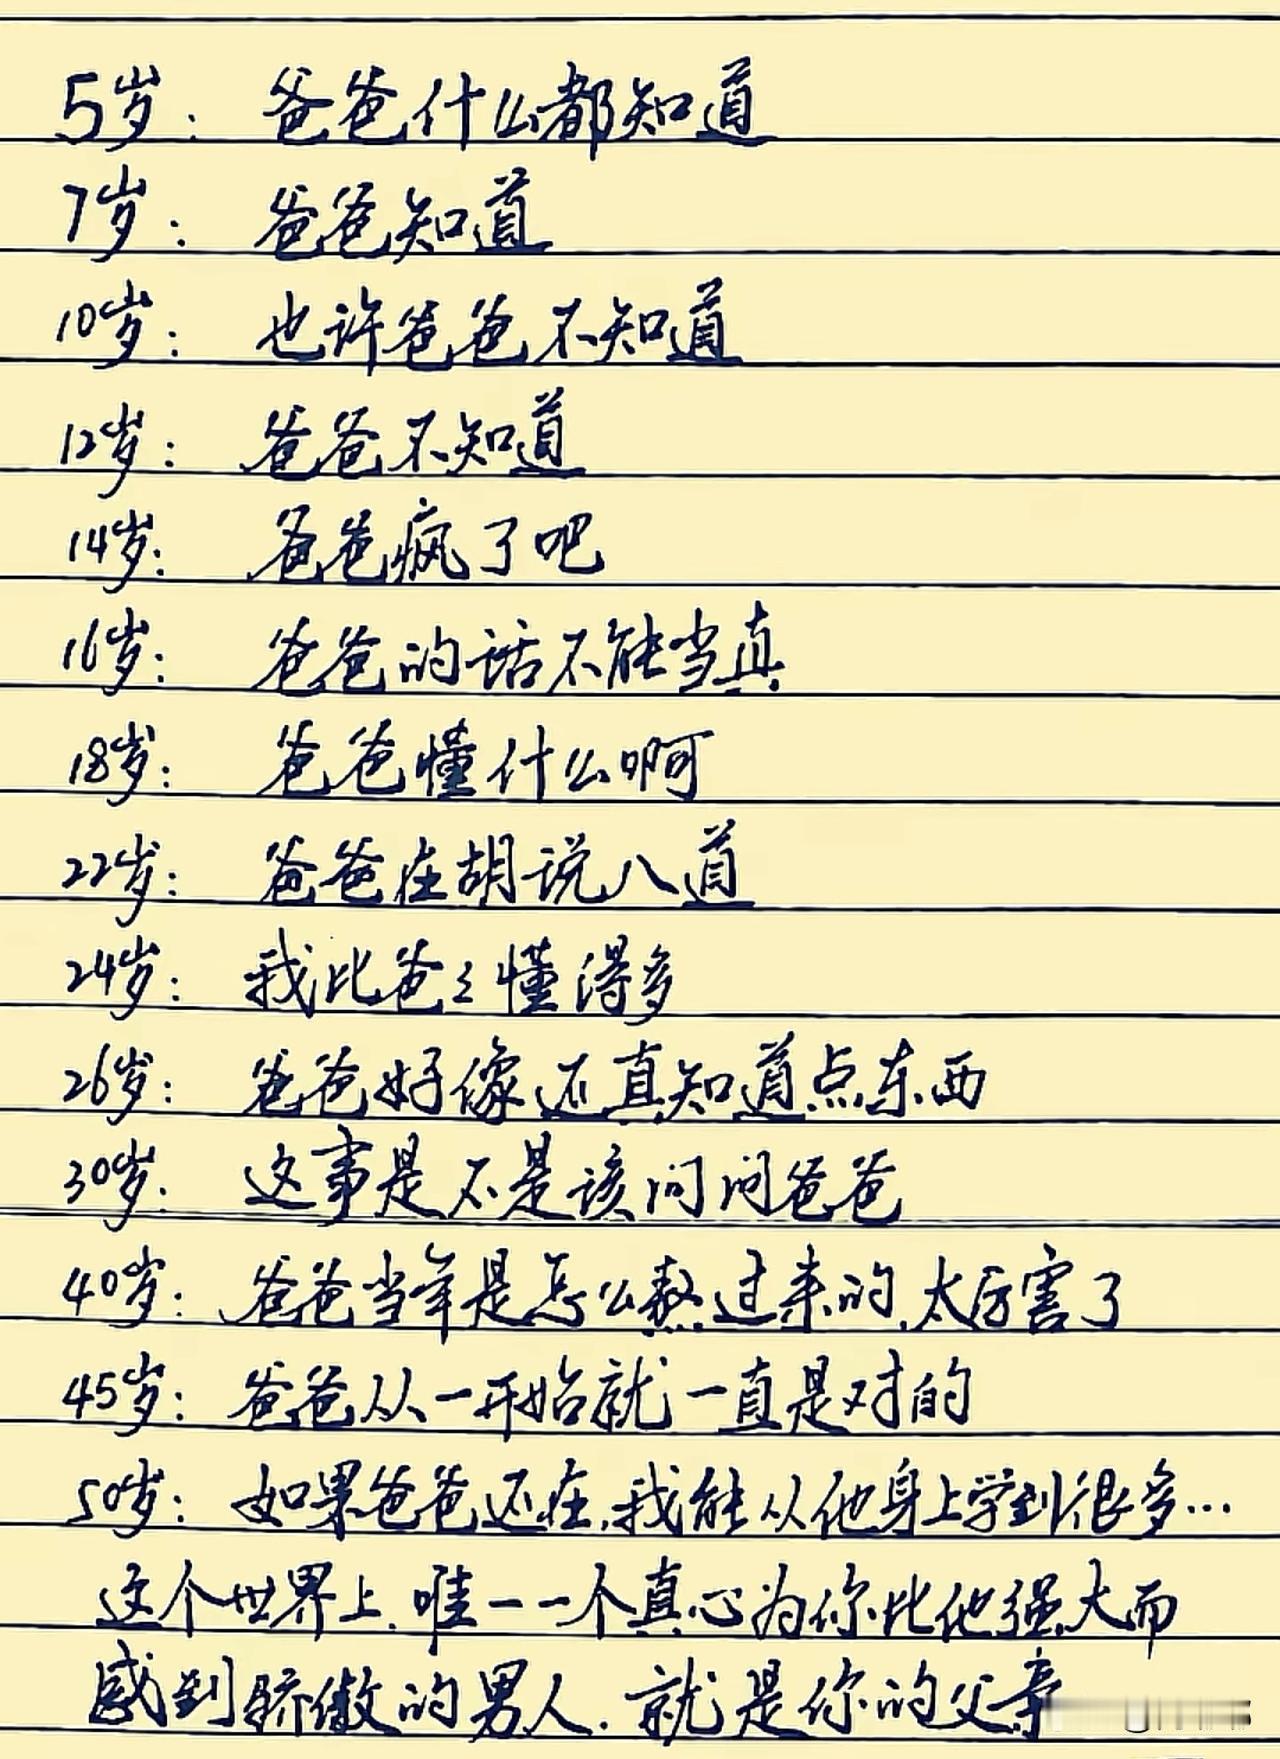 5岁: 爸爸什么都知道
7岁: 爸爸知道
10岁: 也许爸爸不知道
12岁: 爸爸不知道
14岁: 爸爸疯了吧
16岁: 爸爸的话不能当真
18岁: 爸爸懂什么啊
22岁: 爸爸在胡说八道
24岁: 我比爸々懂得多
26岁: 爸爸好像还真知道点东西
30岁: 这事是不是该问问爸爸
40岁: 爸爸当年是怎么熬过来的,太厉害了
45岁: 爸爸从一开始就一直是对的
50岁: 如果爸爸还在,我能从他身上学到很多…
这个世界上,唯一一个真心为你比他强大而
感到骄傲的男人,就是你的父亲